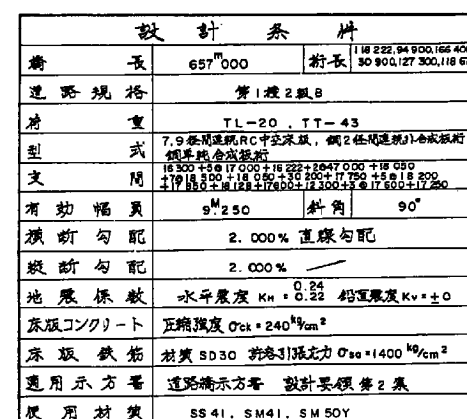 設計条件
橋長 657m000 桁長 118 222,94 900,166 400
30 900,127 300,118 6
道路規格 第1種2級B
荷重 TL-20 , TT-43
型式 7,9径間連続RC中空床版, 鋼2径間連続非合成鈑桁
鋼単純合成鈑桁
支間 16 300+5@17 000+16 222+2@47 000+18 050
+7@18 500+18 050+30 200+17 750+5@18 200
+17 850+18 128+17600+12 300+3@17 600+17 250
有効幅員 9.M250 斜角 90°
横断勾配 2.000% 直線勾配
縦断勾配 2.000%
地震係数 水平震度 KH = 0.24
0.22 鉛直震度 Kv = ±0
床版コンクリート 圧縮強度 σck = 240kg/cm2
床版鉄筋 材質 SD30 許容引張応力 σsa = 1400 kg/cm2
適用示方書 道路橋示方書 設計要領第2集
使用材質 SS41, SM41, SM50Y